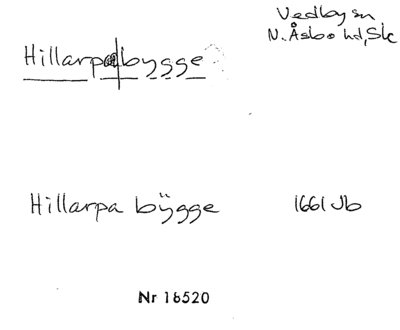 Vedby sn
N. Åsbo hd, Sk
Hillarpabygge
Hillarpa bÿgge 1661 Jb
Nr 16520